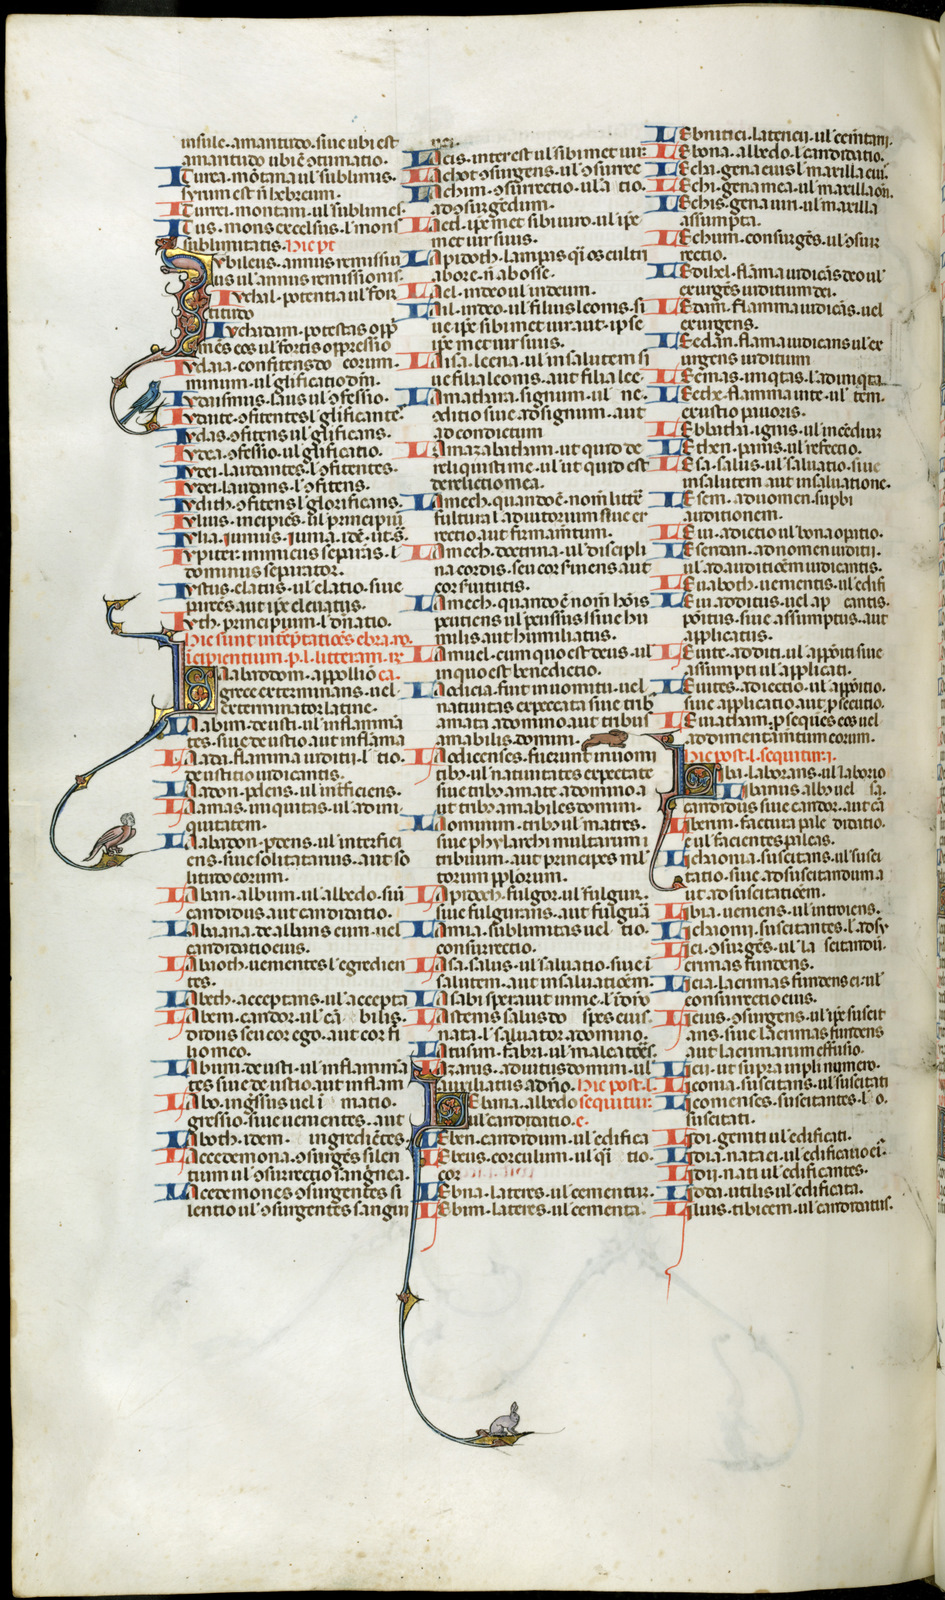 insule. amaritudo. siue ubi est
amaritudo ubi ē ꝯtumatio.
Iturea. mōtana ul sublimis.
syrum est ī hebreum.
Iturei. montani. ul sublimes.
Itus. mons excelsus. l mons
sublimitatis. Hic pꝰ
Iubileus. annus remissiu
us ul annus remissionis.
Iuchal. potentia ul for
titudo
Iuchadam. potestas opp̄
mēs eos ul fortis oppressio
Iudaia. confitendo eorum.
minum. ul glificatio dn̄i.
Iudaismus. laus ul ꝯfessio.
Iudaite. ꝯfitentes l glificante
Iudas. ꝯfitens ul glificans.
Iudea. ꝯfessio. ul glificatio.
Iudei. laudantes. l ꝯfitentes.
Iudei. laudans. l ꝯfitens.
Iudith. ꝯfitens l glorificans.
Iulius. incipiēs. ul principiū
Iulia. iunius. iunia. idē. ut s̄.
Iupiter. inimicus separās. l
dominus separator.
Iustus. elatus. ul elatio. siue
parcēs aut ipe eleuatus.
Iuth. principium. l dn̄atio.
Hic sunt int̄ptatiōes ebra.ro.
icipientium. p. l. litteram.
Laabaddom. appolliō ea.
grece exterminans. uel
exterminator latine.
Laabim. deusti. ul inflamma
tes. siue deustio aut inflama
Laada. flamma iuditii. l tio.
deustitio iudicantis.
Laadon. pdens. ul interficiens.
Laamas. iniquitas. ul ad ini
quitatem.
Laabadon. pdens. ul interfici
ens. siue solitatarius. aut so
litudo eorum.
Laban. album. ul albedo. siū
candidus aut candidatio.
Labaana. de albans eum. uel
candidatio eius.
Labaoth. uementes l egredien
tes.
Labech. acceptans. ul accepta
Labem. candor. ul cā bilis.
didus seu cor ego. aut cor fi
lio meo.
Labum. deusti. ul inflammā
tes siue deustio. aut inflam
Labo. ingssus uel i matio.
gressio. siue uementes. aut
Laboth. idem. ingrediētes
Lacedemona. ꝯsurgēs silen
tium ul ꝯsurrectio sanguinea.
Lacedemones ꝯsurgentes si
lentio ul ꝯsurgentes sangui
nei.
Lacis. interest ul sibimet uir.
Lachot ꝯsurgens. ul ꝯsurrec
Lachim. ꝯsurrectio. ul a tio.
ad ꝯsurgēdum.
Lael. ipe met sibi uiro. ul ipe
met uir suus.
Lapidoth. lampas qi os culti
abore. n̄ abosse.
Lael. in deo ul in deum.
Lail. in deo. ul filius leonis. si
ue ipe sibi met uir. aut. ipse
ipe met uir suus.
Laisa. leena. ul in salutem si
ue filia leonis. aut filia lee
Lamathara. signum. ul ne.
editio siue ad signum. aut
ad condictum
Lamazabathani. ut quid de
reliquistime. ul ut quid est
derelictio mea.
Lamech. quando ē nom̄ litter̄
fultura l adiutorium siue er
rectio aut firmam̄tum.
Lamech. doctrina. ul discipli
na cordis. seu cor sinens aut
cor sintutis.
Lamech. quando ē nom̄ hōis
peutiens ul peussus siue hu
milis aut humiliatus.
Lamuel. cum quo est deus. ul
in quo est benedictio.
Laodicia. sint in uomitu. uel
natiuitas expectata siue trib
amata adomino. aut tribus
amabilis domini.
Laodicenses. fuerunt in uomi
tibʒ. ul natiuitates expectate
siue tribʒ amate a domino. a
ut tribʒ amabiles domini.
Laominum. tribʒ ul matres.
siue phylarchi multarum i
tribuum. aut principes mil
torum pplorum.
Lapidoch. fulgor. ul fulgur.
siue fulgurans. aut fulgurā
Lania. sublimitas uel tio.
consurrectio.
Lasa. salus. ul saluatio. siue i
salutem. aut in saluatiōem.
Lasabi. sperauit in me. l in do ro
Lastems salus do spes eius.
nata. l saluator a domino.
Latusim. fabri. ul maleatores.
Lazarus. adiutus domini. ul
auxiliatus a dn̄o. Hic post. l.
Lebana. albedo sequitur
ul candidatio. e.
Leben. candidum. ul edifica
Lebeus. corculum. ul qi tio.
cor
Lebna. lateres. ul cementur.
Lebim. lateres. ul cementa.
Lebnitici. laterici. ul cem̄tarij.
Lebona. albedo. l candidatio.
Lechi. gena eius l maxilla eiꝰ.
Lechi. gena mea. ul maxilla m̄.
Lechis. gena uiri. ul maxilla
assumpta.
Lechum. consurgēs. ul ꝯsur
rectio.
Ledihel. flāma iudicās deo ul
exurgēs iuditium dei.
Ledam. flamma iudicās. uel
exurgens.
Ledan. flāma iudicans ul ex
urgens iuditium
Lemas. iniqtas. l ad iniqta
Leche. flamma uite. ul tem.
exustio pauoris.
Lebbatha. ignis. ul incēdiū
Lethen. panis. ul refectio.
Lesa. salus. ul saluatio. siue
in salutem aut in saluatione.
Lesem. ad nomen. supbi
auditionem.
Leui. adictio ul bona opatio.
Lesendan. ad nomen iuditij
ul ad auditiōem iudicantis.
Leuaboth. uementis. ul edifi
Leui. additus. uel ap cantis.
positus. siue assumptus. aut
applicatus.
Leuite. additi. ul appoiti siue
assumpti ul applicati.
Leuites. adiectio. ul appoitio.
siue applicatio aut psecutio.
Leuiatham. pseques eos uel
additamentum eorum.
Hic post. l. sequitur. i.
Liba. laborans. ul laborio
Libanus albʒ uel sa.
candidus siue candor. aut cā
Liberim. factura pale didatio.
e. ul facientes paleas.
Lichaonia. suscitans. ul susci
tatio. siue ad suscitandum a
ut ad suscitatiōem.
Libia. uemens. ul introiens.
Lichaonij. suscitantes. l ad su
Licei. ꝯsurgēs. ul la scitandū.
crimas fundens.
Licia. lacrimas fundens ei. ul
consurrectio eius.
Licius. ꝯsurgens. ul ipe suscit
ans. siue lacrimas fundens
aut lacrimarum effusio.
Licij. ut supra in pli numero.
Liconia. suscitans. ul suscitati
Licomenses. suscitantes. l o.
suscitati.
Lidi. geniti ul edificati.
Lidia. nata ei. ul edificatio ei.
Lidij. nati ul edificantes.
Lidda. utilis ul edificata.
Liluis. tibicem. ul candidatus.